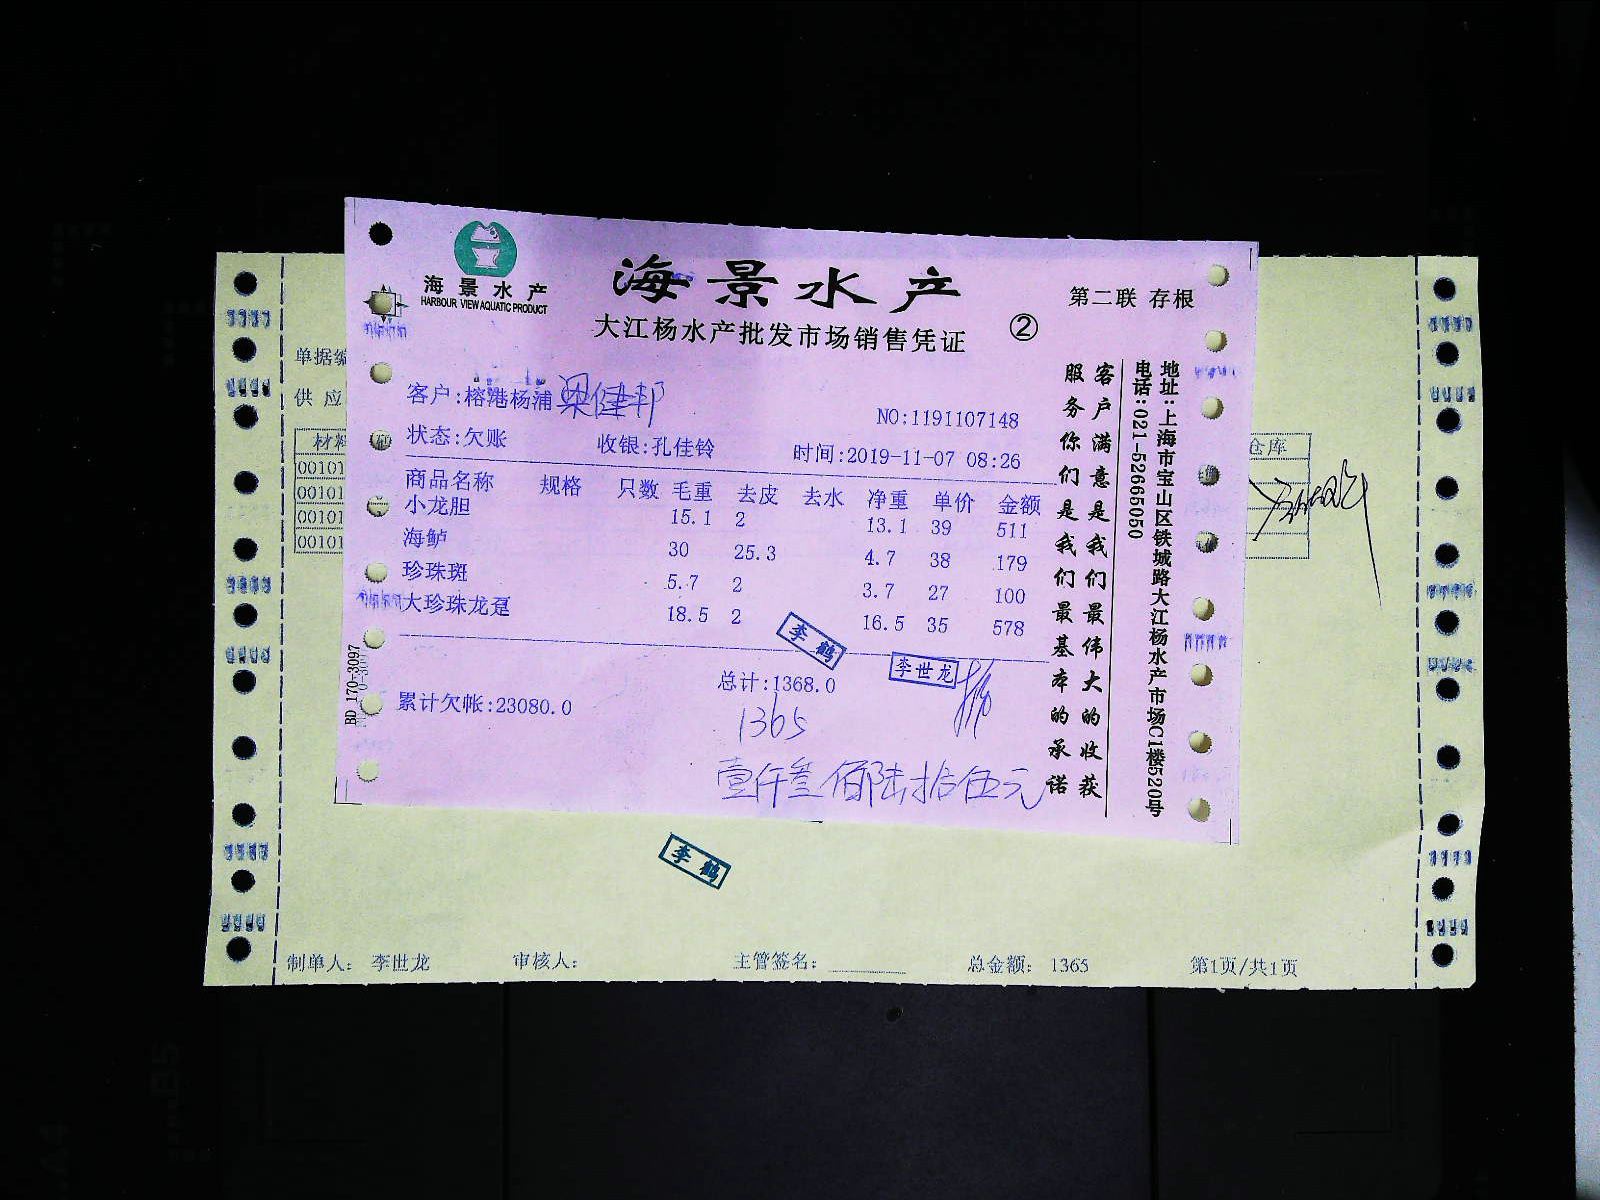 海景水产
HARBOUR VIEW AQUATIC PRODUCT
海景水产
大江杨水产批发市场销售凭证
②
第二联 存根
客户:榕港杨浦 梁健邦
NO:1191107148
状态:欠账 收银:孔佳铃 时间:2019-11-07 08:26
商品名称 规格 只数 毛重 去皮 去水 净重 单价 金额
小龙胆 15.1 2 13.1 39 511
海鲈 30 25.3 4.7 38 179
珍珠斑 5.7 2 3.7 27 100
大珍珠龙趸 18.5 2 16.5 35 578
李鹤
李世龙
总计:1368.0
累计欠帐:23080.0
1365
壹仟叁佰陆拾伍元
BD 170-3097
客户满意是我们最伟大的收获
服务你们是我们最基本的承诺
地址:上海市宝山区铁城路大江杨水产市场C1楼520号
电话:021-52665050
单据编
供应
材料
00101
00101
00101
00101
仓库
李鹤
制单人: 李世龙 审核人: 主管签名: 总金额: 1365 第1页/共1页